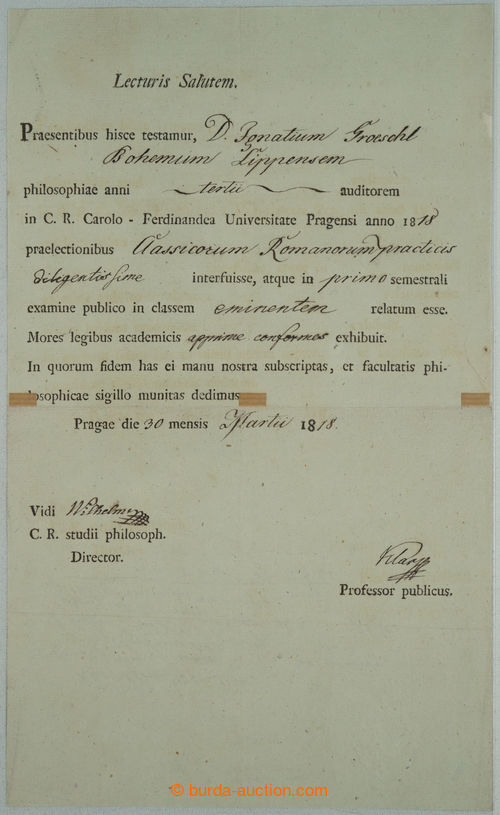 Lecturis Salutem.
Praesentibus hisce testamur, D. Ignatium Groeschl
Bohemum Lippensem
philosophiae anni tertii auditorem
in C. R. Carolo - Ferdinandea Universitate Pragensi anno 1818
praelectionibus Classicorum Romanorum practicis
diligentissime interfuisse, atque in primo semestrali
examine publico in classem eminentem relatum esse.
Mores legibus academicis apprime conformes exhibuit.
In quorum fidem has ei manu nostra subscriptas, et facultatis phi-
losophicae sigillo munitas dedimus
Pragae die 30 mensis Martii 1818.
Vidi Wilhelm
C. R. studii philosoph.
Director.
Klar
Professor publicus.
© burda-auction.com